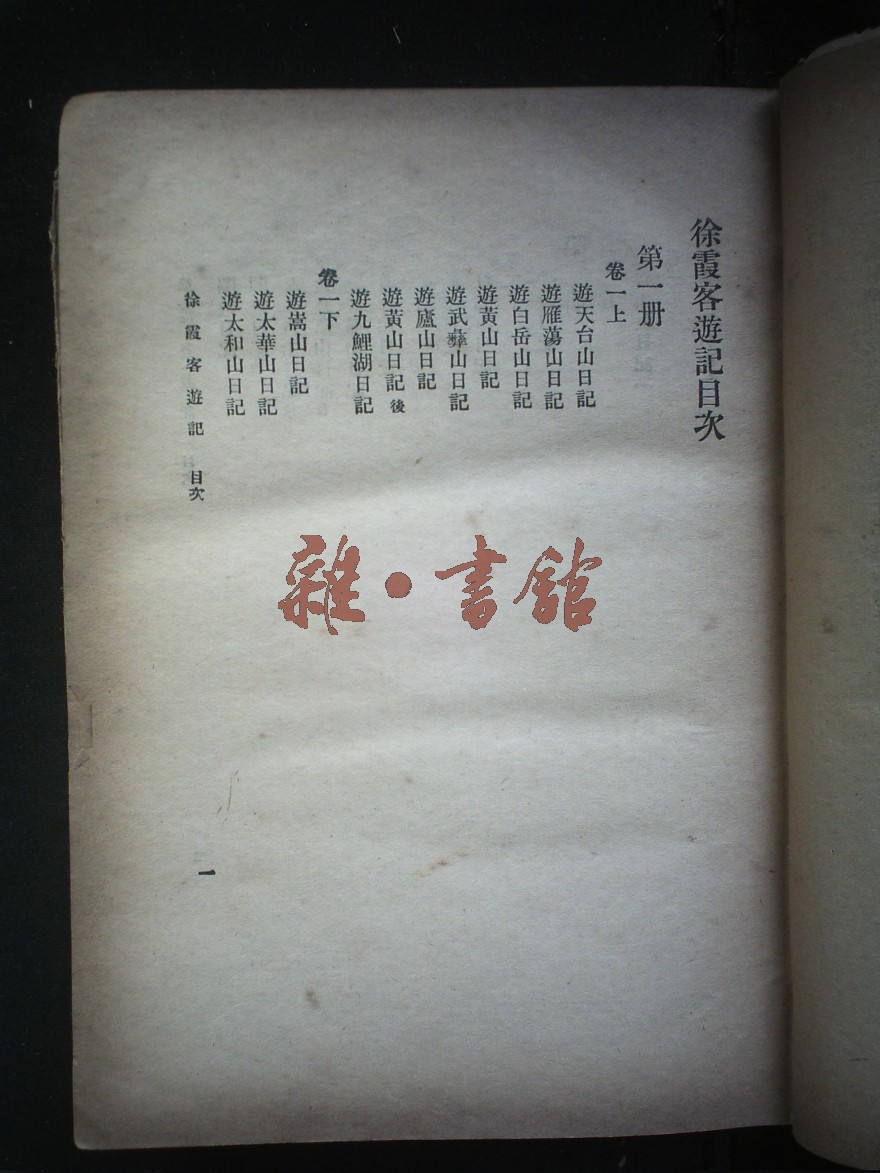 徐霞客遊記目次
第一册
卷一上
遊天台山日記
遊雁蕩山日記
遊白岳山日記
遊黃山日記
遊武彝山日記
遊廬山日記
遊黃山日記後
遊九鯉湖日記
卷一下
遊嵩山日記
遊太華山日記
遊太和山日記
徐霞客遊記 目次
一
雜·書館